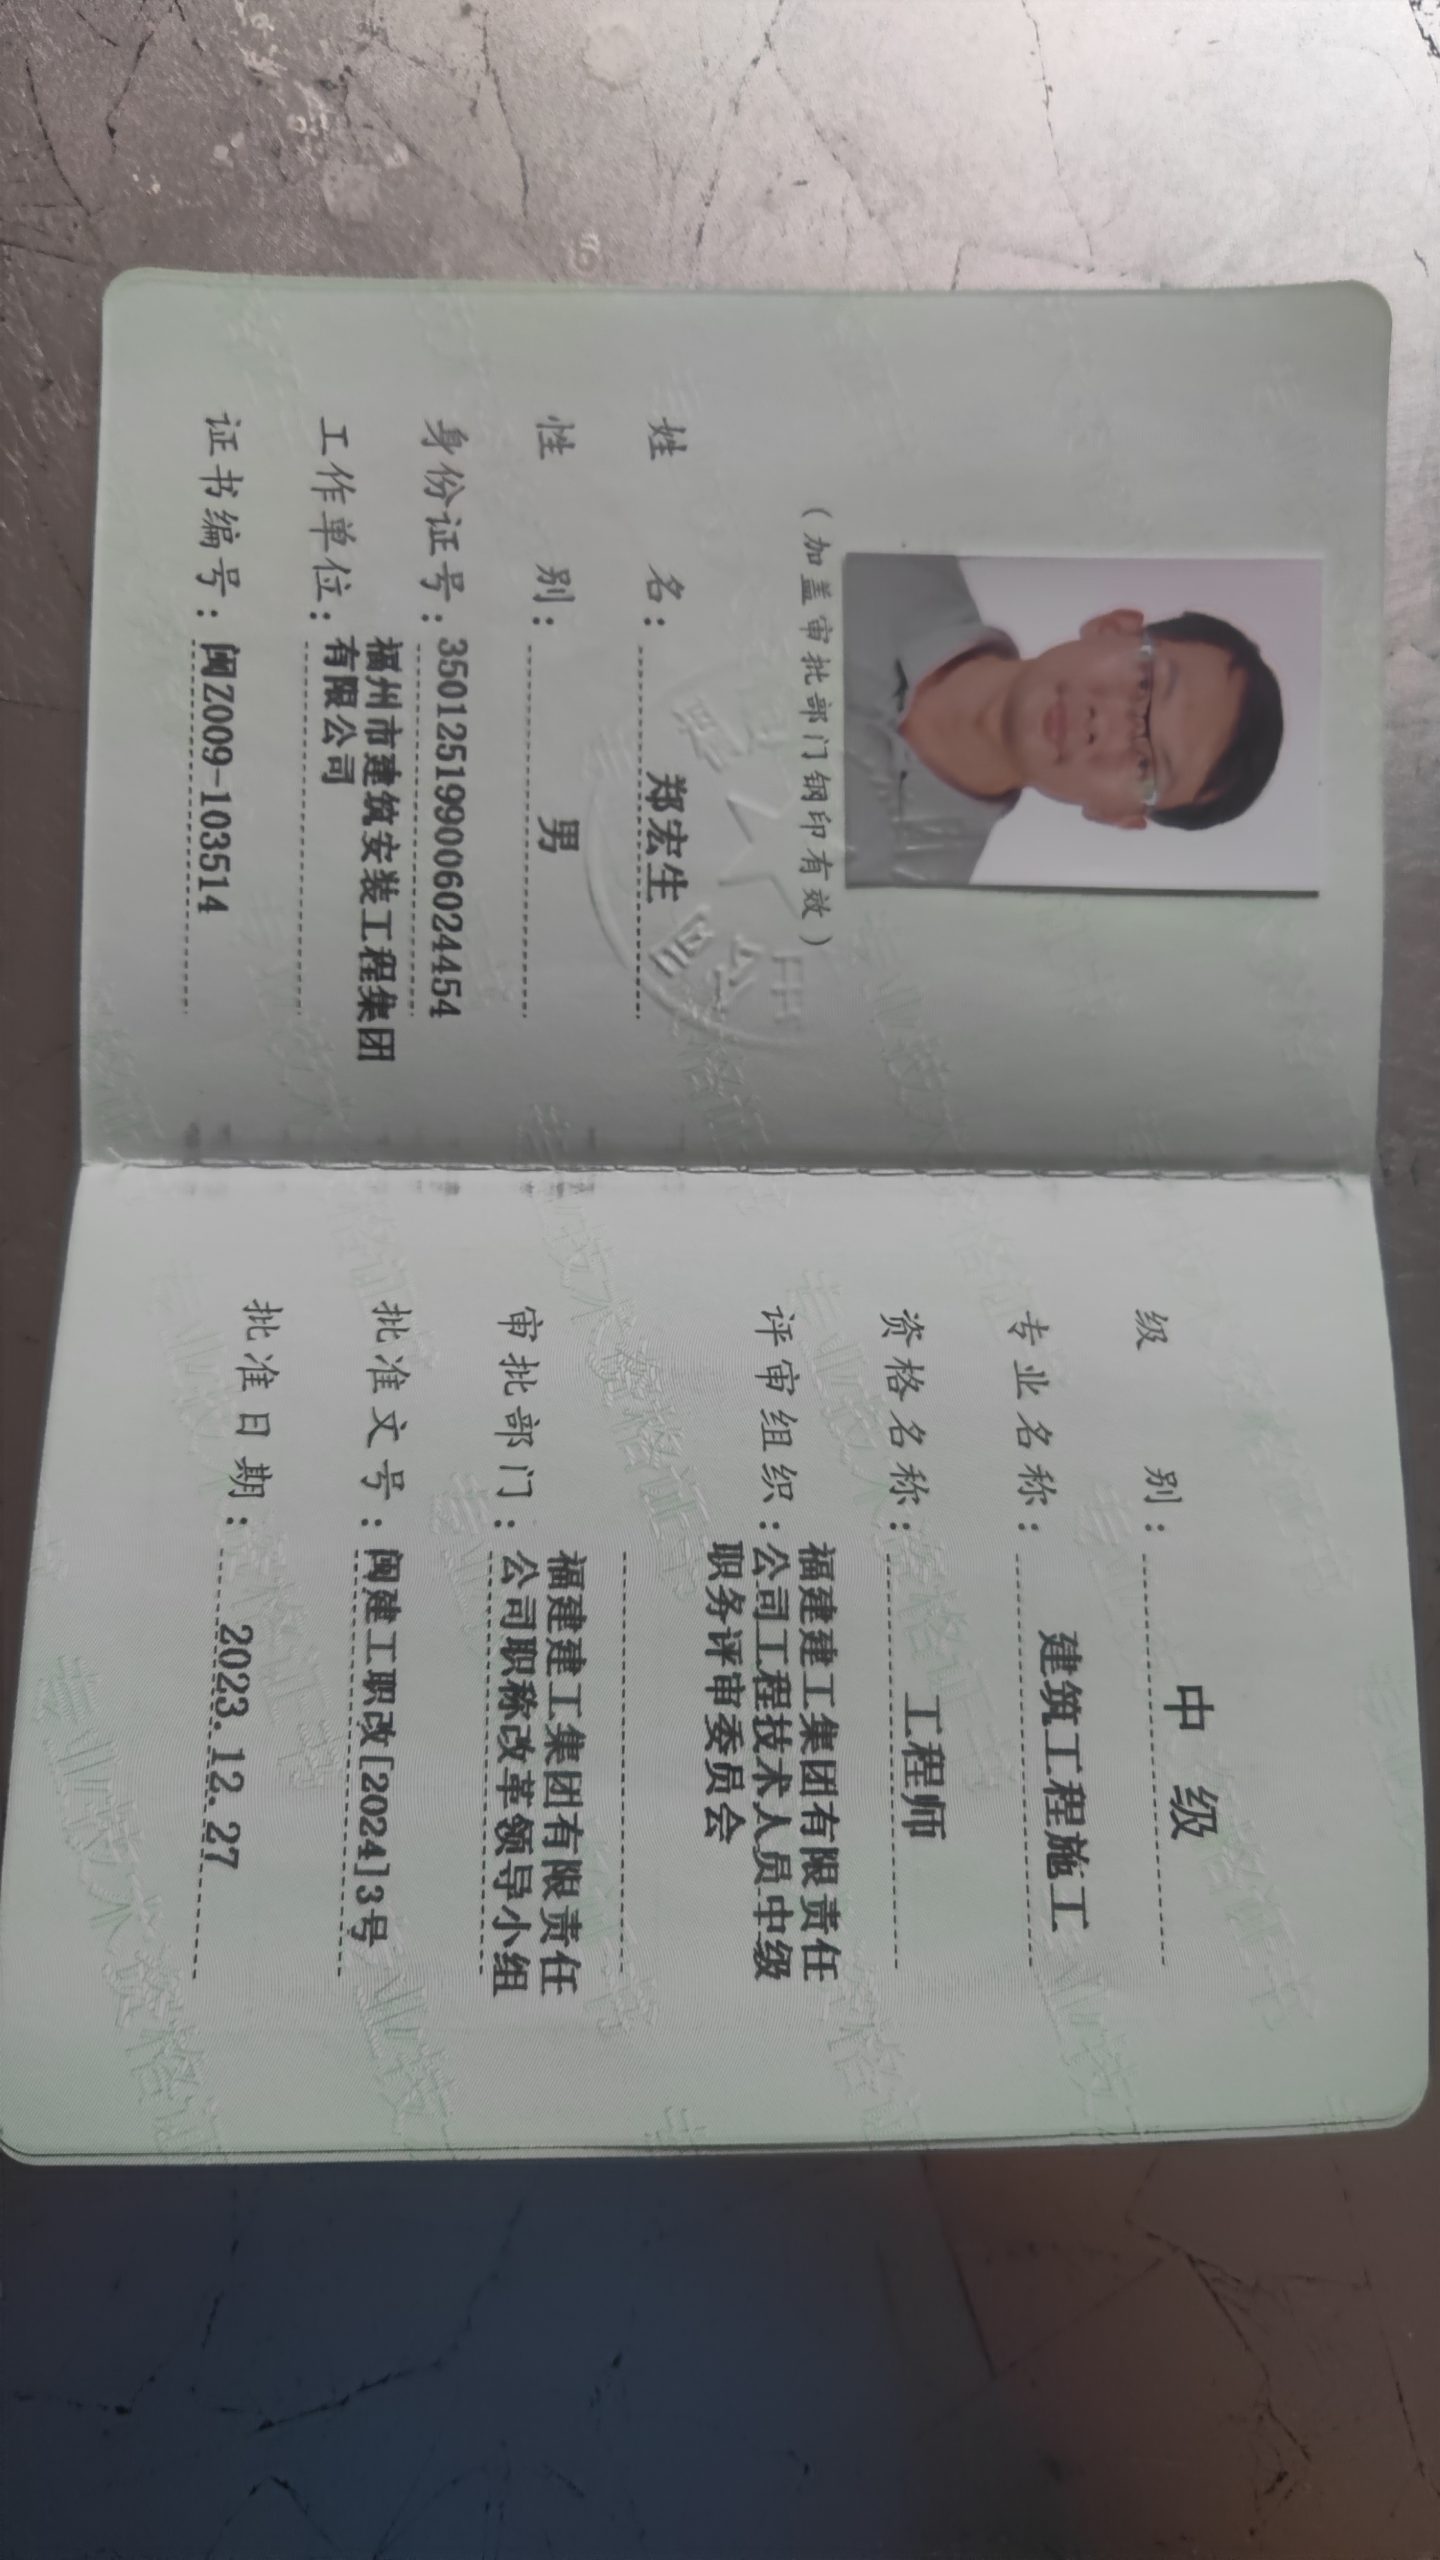 (加盖审批部门钢印有效)
姓 名: 郑宏生
性 别: 男
身份证号: 350125199006024454
工作单位: 福州市建筑安装工程集团
有限公司
证书编号: 闽Z009-103514
级 别: 中 级
专业名称: 建筑工程施工
资格名称: 工程师
福建建工集团有限责任
评审组织: 公司工程技术人员中级
职务评审委员会
福建建工集团有限责任
审批部门: 公司职称改革领导小组
批准文号: 闽建工职改[2024]3号
批准日期: 2023.12.27